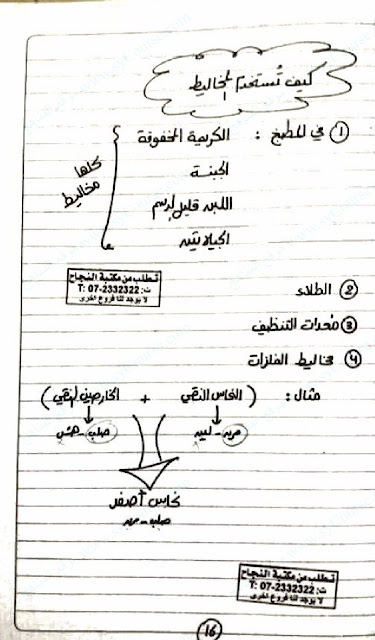 كيف تُستخدم المخاليط
① في المطبخ : الكريمة المخفوقة
الجبنة
اللبن قليل الدسم
الجيلاتين
كلها مخاليط
تطلب من مكتبة النجاح
ت: 2332322-07 :T
لا يوجد لنا فروع اخرى
② الطلاء
③ معدات التنظيف
④ مخاليط الفلزات
مثال : (النحاس النقي + الخارصين النقي)
مرن - لين
صلب - هش
نحاس أصفر
صلب - مرن
تطلب من مكتبة النجاح
ت: 2332322-07 :T
لا يوجد لنا فروع اخرى
16